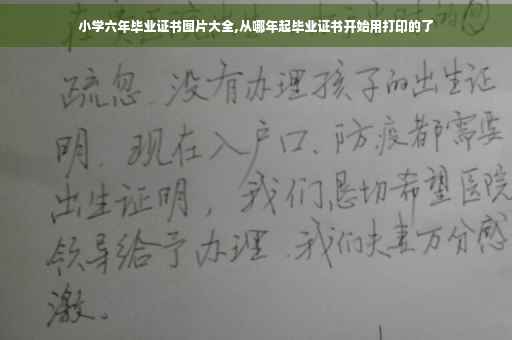 小学六年毕业证书图片大全,从哪年起毕业证书开始用打印的了
疏忽、没有办理孩子的出生证
明、现在入户口、防疫都需要
出生证明，我们恳切希望医院
领导给予办理、我们夫妻万分感
激。